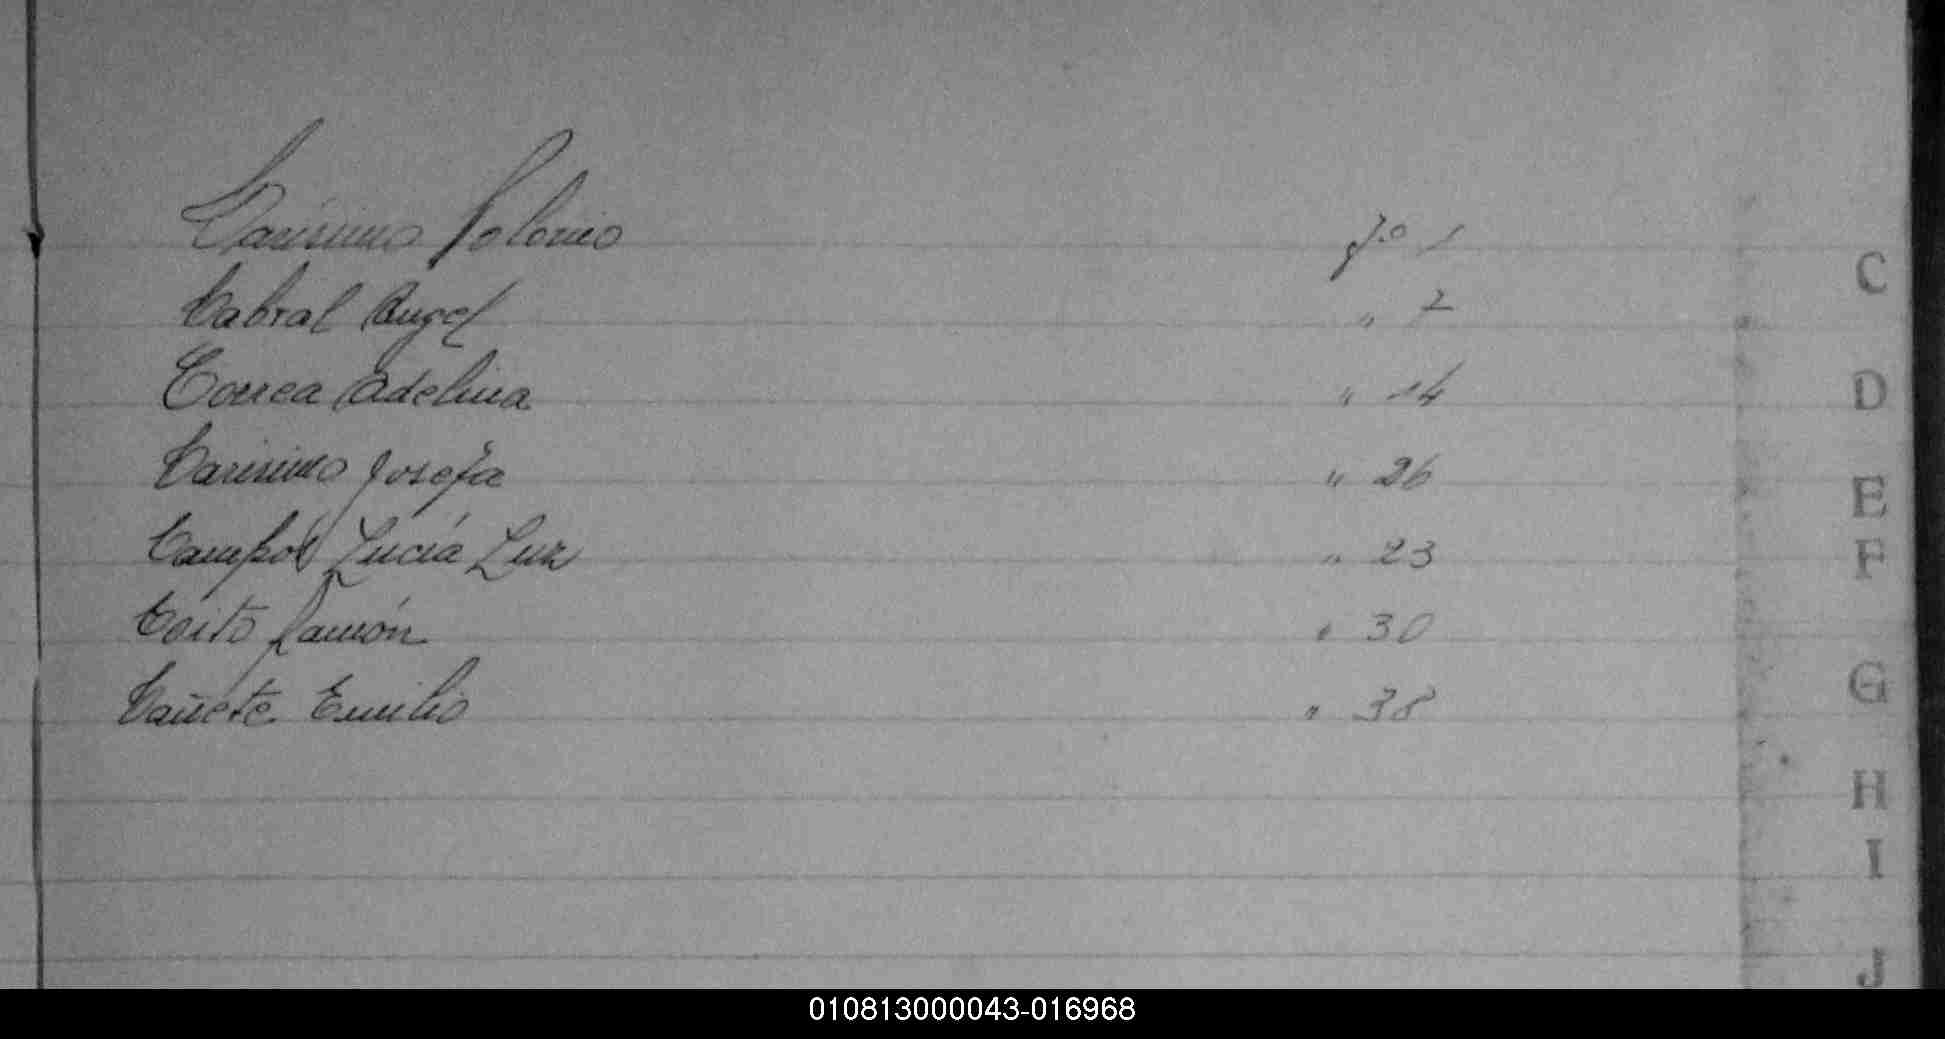 Carísimo Polonio fo 1
Cabral Angel " 7
Correa Adelina " 14
Carisimo Josefa " 26
Campos Lucía Luz " 23
Coito Ramón " 30
Cañete Emilio " 38
C
D
E
F
G
H
I
J
010813000043-016968